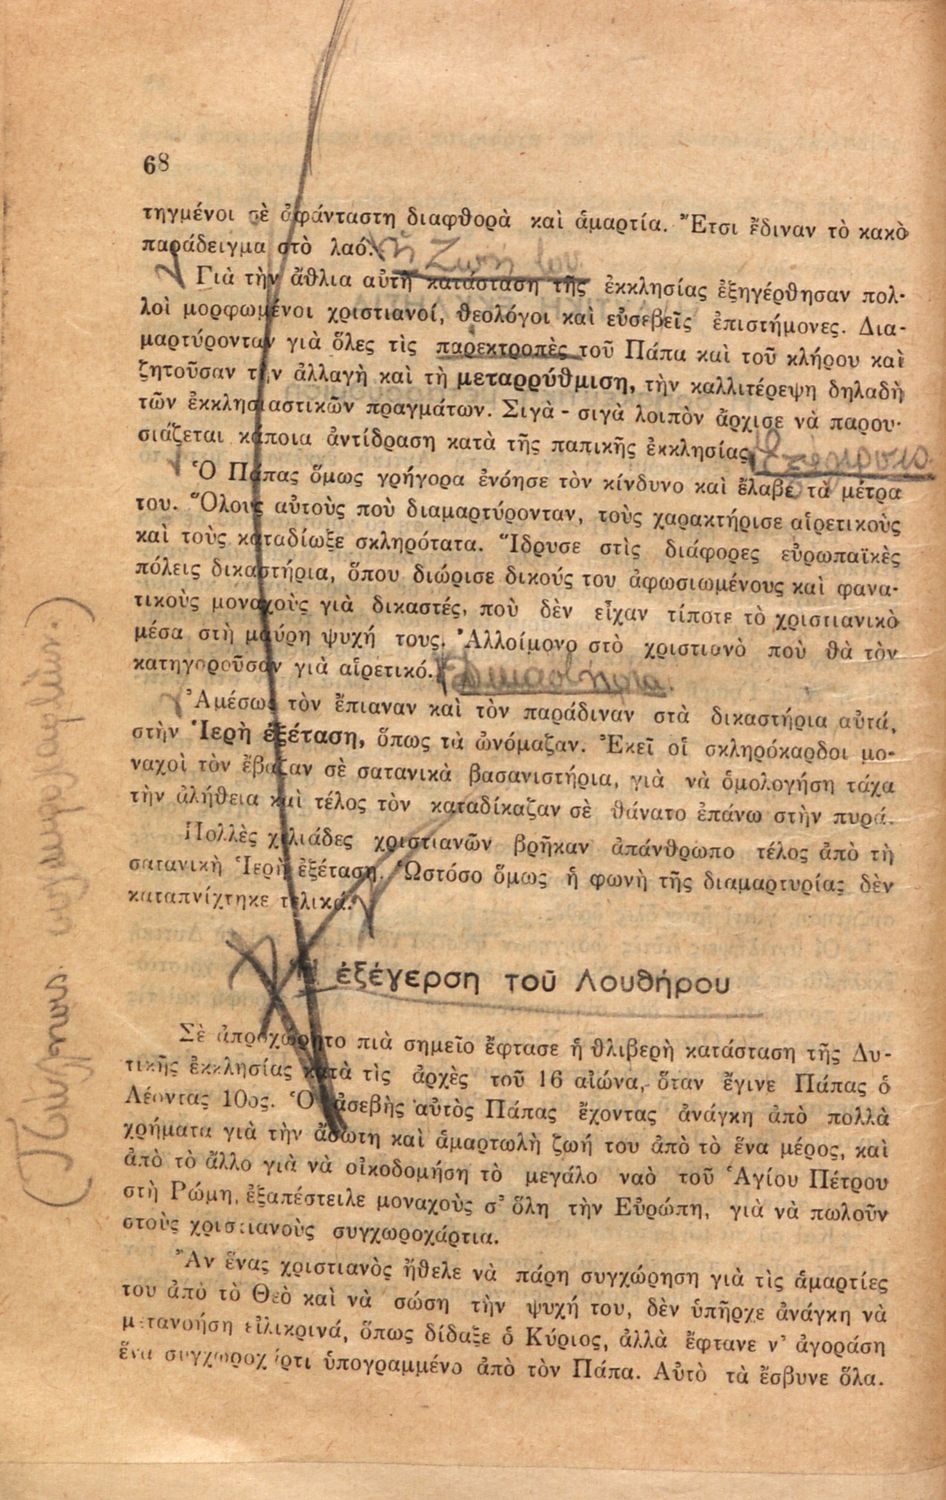 68
τηγμένοι σὲ ἀφάνταστη διαφθορὰ καὶ ἁμαρτία. Ἔτσι ἔδιναν τὸ κακὸ
παράδειγμα στὸ λαό.
ἡ ζωὴ του
Γιὰ τὴν ἄθλια αὐτὴ κατάσταση τῆς ἐκκλησίας ἐξηγέρθησαν πολ-
λοὶ μορφωμένοι χριστιανοί, θεολόγοι καὶ εὐσεβεῖς ἐπιστήμονες. Δια-
μαρτύρονταν γιὰ ὅλες τὶς παρεκτροπὲς τοῦ Πάπα καὶ τοῦ κλήρου καὶ
ζητοῦσαν τὴν ἀλλαγὴ καὶ τὴ μεταρρύθμιση, τὴν καλλιτέρεψη δηλαδὴ
τῶν ἐκκλησιαστικῶν πραγμάτων. Σιγὰ - σιγὰ λοιπὸν ἄρχισε νὰ παρου-
σιάζεται κάποια ἀντίδραση κατὰ τῆς παπικῆς ἐκκλησίας
Ὁ Πάπας ὅμως γρήγορα ἐνόησε τὸν κίνδυνο καὶ ἔλαβε τὰ μέτρα
του. Ὅλους αὐτοὺς ποὺ διαμαρτύρονταν, τοὺς χαρακτήρισε αἱρετικοὺς
καὶ τοὺς καταδίωξε σκληρότατα. Ἵδρυσε στὶς διάφορες εὐρωπαϊκὲς
πόλεις δικαστήρια, ὅπου διώρισε δικούς του ἀφωσιωμένους καὶ φανα-
τικοὺς μοναχοὺς γιὰ δικαστές, ποὺ δὲν εἶχαν τίποτε τὸ χριστιανικὸ
μέσα στὴ μαύρη ψυχή τους. Ἀλλοίμονο στὸ χριστιανὸ ποὺ θὰ τὸν
κατηγοροῦσαν γιὰ αἱρετικό.
Δικαστήρια.
Ἀμέσως τὸν ἔπιαναν καὶ τὸν παράδιναν στὰ δικαστήρια αὐτά,
στὴν Ἱερὴ ἐξέταση, ὅπως τὰ ὠνόμαζαν. Ἐκεῖ οἱ σκληρόκαρδοι μο-
ναχοὶ τὸν ἔβαζαν σὲ σατανικὰ βασανιστήρια, γιὰ νὰ ὁμολογήση τάχα
τὴν ἀλήθεια καὶ τέλος τὸν καταδίκαζαν σὲ θάνατο ἐπάνω στὴν πυρά.
Πολλὲς χιλιάδες χριστιανῶν βρῆκαν ἀπάνθρωπο τέλος ἀπὸ τὴ
σατανικὴ Ἱερὴ ἐξέταση. Ὡστόσο ὅμως ἡ φωνὴ τῆς διαμαρτυρίας δὲν
καταπνίχτηκε τελικά.
Ἡ ἐξέγερση τοῦ Λουθήρου
Σὲ ἀπροχώρητο πιὰ σημεῖο ἔφτασε ἡ θλιβερὴ κατάσταση τῆς Δυ-
τικῆς ἐκκλησίας κατὰ τὶς ἀρχὲς τοῦ 16 αἰώνα, ὅταν ἔγινε Πάπας ὁ
Λέοντας 10ος. Ὁ ἀσεβὴς αὐτὸς Πάπας ἔχοντας ἀνάγκη ἀπὸ πολλὰ
χρήματα γιὰ τὴν ἄσωτη καὶ ἁμαρτωλὴ ζωή του ἀπὸ τὸ ἕνα μέρος, καὶ
ἀπὸ τὸ ἄλλο γιὰ νὰ οἰκοδομήση τὸ μεγάλο ναὸ τοῦ Ἁγίου Πέτρου
στὴ Ρώμη, ἐξαπέστειλε μοναχοὺς σ' ὅλη τὴν Εὐρώπη, γιὰ νὰ πωλοῦν
στοὺς χριστιανοὺς συγχωροχάρτια.
Ἂν ἕνας χριστιανὸς ἤθελε νὰ πάρη συγχώρηση γιὰ τὶς ἁμαρτίες
του ἀπὸ τὸ Θεὸ καὶ νὰ σώση τὴν ψυχή του, δὲν ὑπῆρχε ἀνάγκη νὰ
μετανοήση εἰλικρινά, ὅπως δίδαξε ὁ Κύριος, ἀλλὰ ἔφτανε ν' ἀγοράση
ἕνα συγχωροχάρτι ὑπογραμμένο ἀπὸ τὸν Πάπα. Αὐτὸ τὰ ἔσβυνε ὅλα.